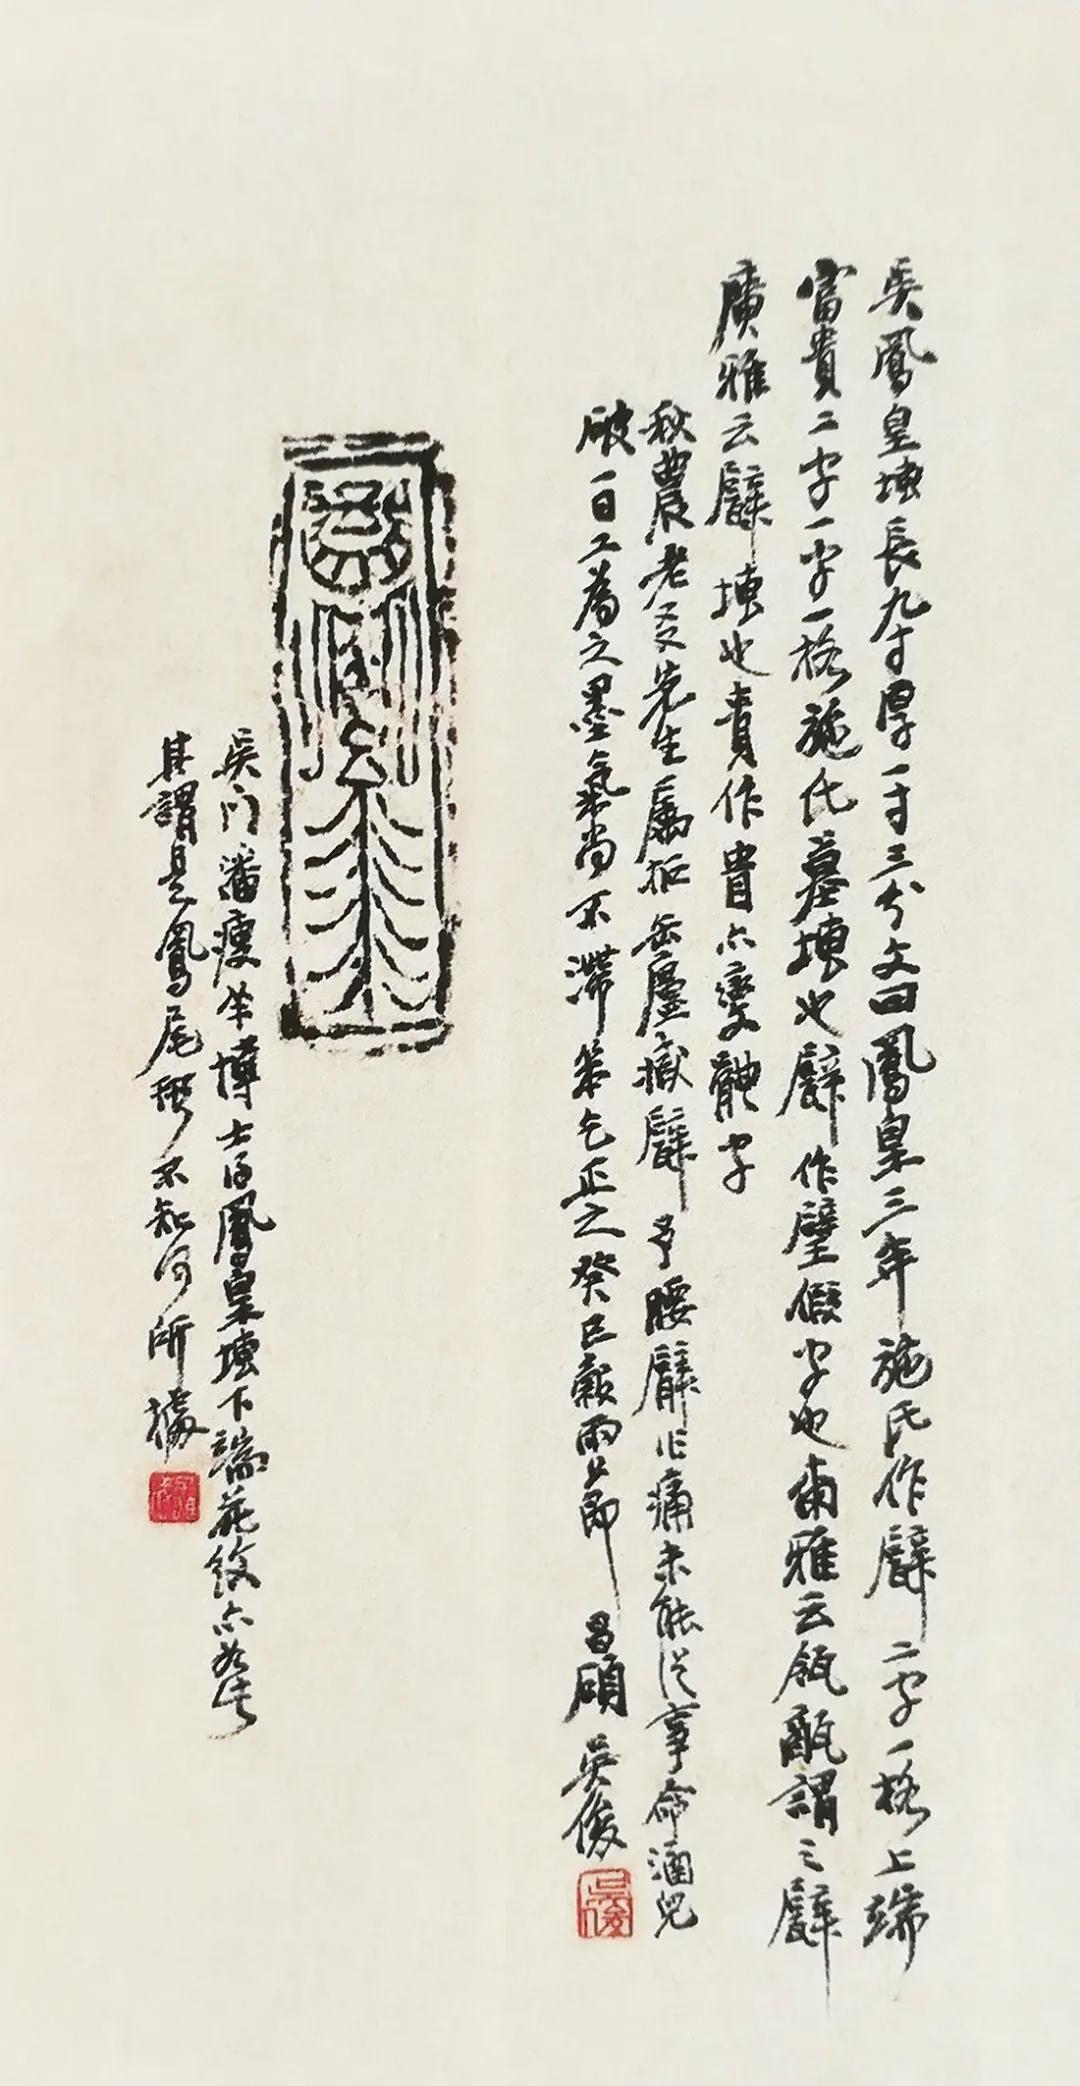 吳鳳皇塼長九寸厚一寸三分文曰鳳皇三年施氏作甓二字一格上端
富貴二字一字一格施氏墓塼也甓作壁假字也爾雅云瓴甋謂之甓
廣雅云甓塼也貴作貴亦變體字
秋農老父先生屬拓缶廬藏甓予腰臂作痛未能從事命涵兒
破一日工為之墨氣尚不滯笨乞正之癸巳穀雨節 昌碩吳俊
吳俊
富貴
吳門潘瘦羊博士得鳳皇塼下端花紋亦如此
其謂是鳳尾形不知何所據